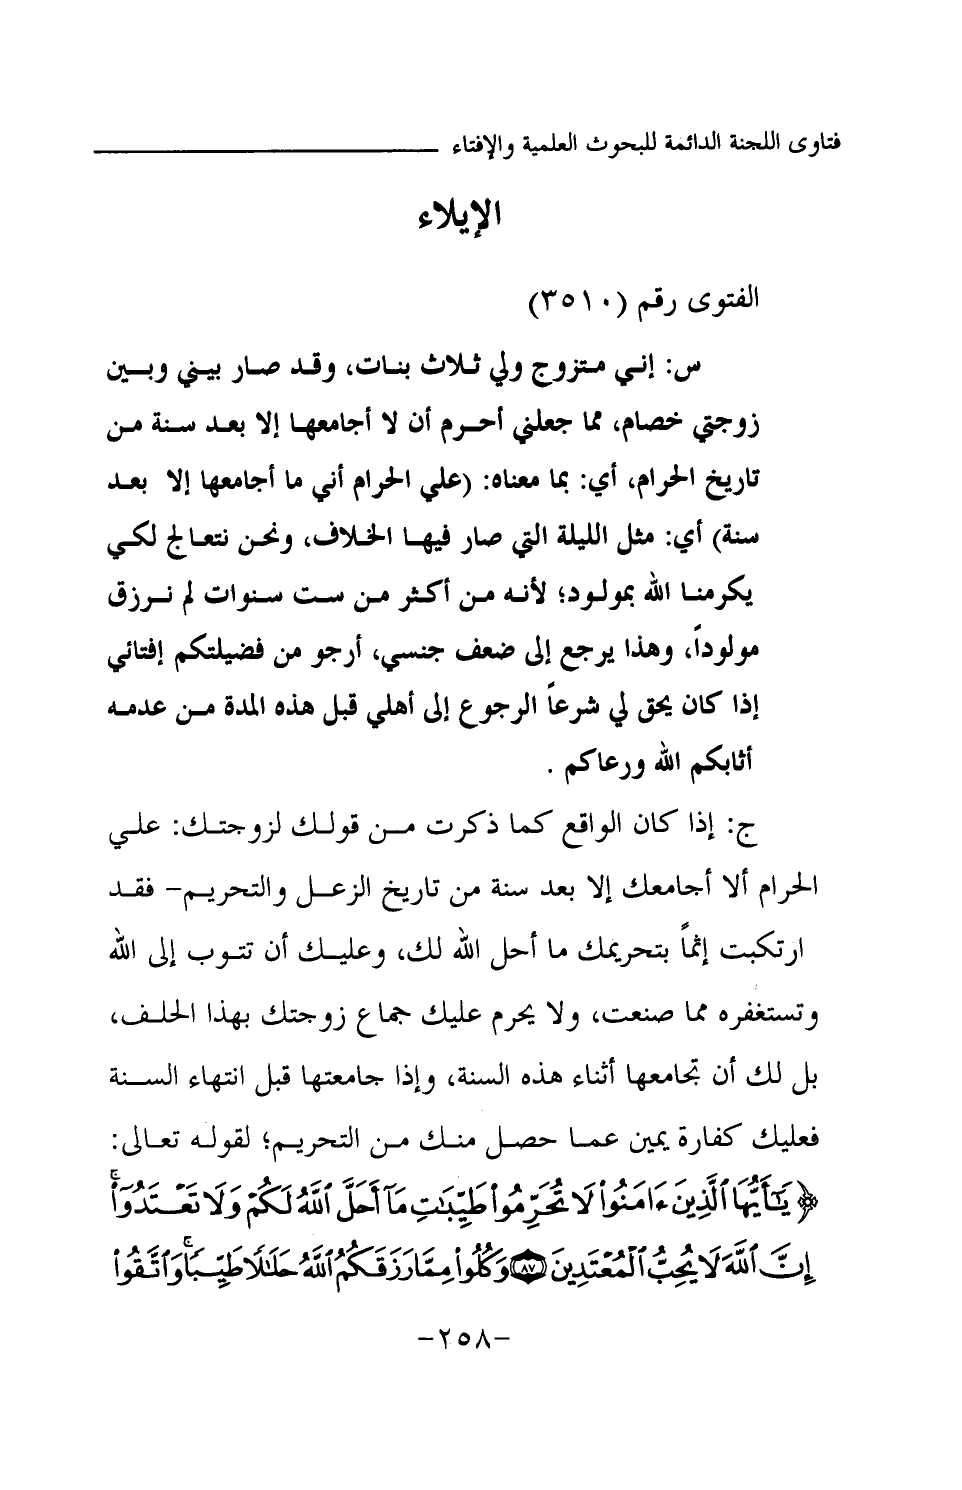 فتاوى اللجنة الدائمة للبحوث العلمية والإفتاء
الإيلاء
الفتوى رقم (٣٥١٠)
س: إني متزوج ولي ثلاث بنات، وقد صار بيني وبين
زوجتي خصام، مما جعلني أحرم أن لا أجامعها إلا بعد سنة من
تاريخ الحرام، أي: بما معناه: (علي الحرام أني ما أجامعها إلا بعد
سنة) أي: مثل الليلة التي صار فيها الخلاف، ونحن نتعالج لكي
يكرمنا الله بمولود؛ لأنه من أكثر من ست سنوات لم نرزق
مولوداً، وهذا يرجع إلى ضعف جنسي، أرجو من فضيلتكم إفتائي
إذا كان يحق لي شرعاً الرجوع إلى أهلي قبل هذه المدة من عدمه
أثابكم الله ورعاكم .
ج: إذا كان الواقع كما ذكرت من قولك لزوجتك: علي
الحرام ألا أجامعك إلا بعد سنة من تاريخ الزعل والتحريم- فقد
ارتكبت إثماً بتحريمك ما أحل الله لك، وعليك أن تتوب إلى الله
وتستغفره مما صنعت، ولا يحرم عليك جماع زوجتك بهذا الحلف،
بل لك أن تجامعها أثناء هذه السنة، وإذا جامعتها قبل انتهاء السنة
فعليك كفارة يمين عما حصل منك من التحريم؛ لقوله تعالى:
﴿يَٰٓأَيُّهَا ٱلَّذِينَ ءَامَنُوا۟ لَا تُحَرِّمُوا۟ طَيِّبَٰتِ مَآ أَحَلَّ ٱللَّهُ لَكُمْ وَلَا تَعْتَدُوٓا۟ۚ
إِنَّ ٱللَّهَ لَا يُحِبُّ ٱلْمُعْتَدِينَ ٨٧ وَكُلُوا۟ مِمَّا رَزَقَكُمُ ٱللَّهُ حَلَٰلًا طَيِّبًاۚ وَٱتَّقُوا۟
-٢٥٨-